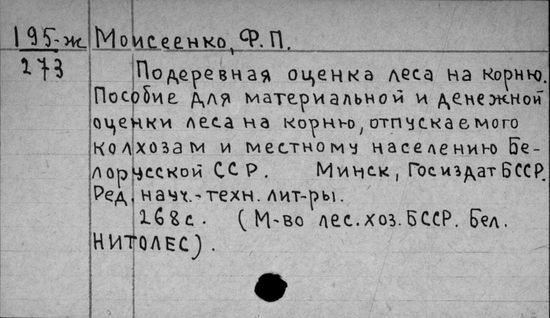 195-ж Моисеенко, Ф.П.
273 Подеревная оценка леса на корню.
Пособие для материальной и денежной
оценки леса на корню, отпускаемого
колхозам и местному населению Бе-
лорусской ССР. Минск, Госиздат БССР.
Ред. науч.-техн. лит-ры.
268с. (М-во лес. хоз. БССР. Бел.
НИТОЛЕС).